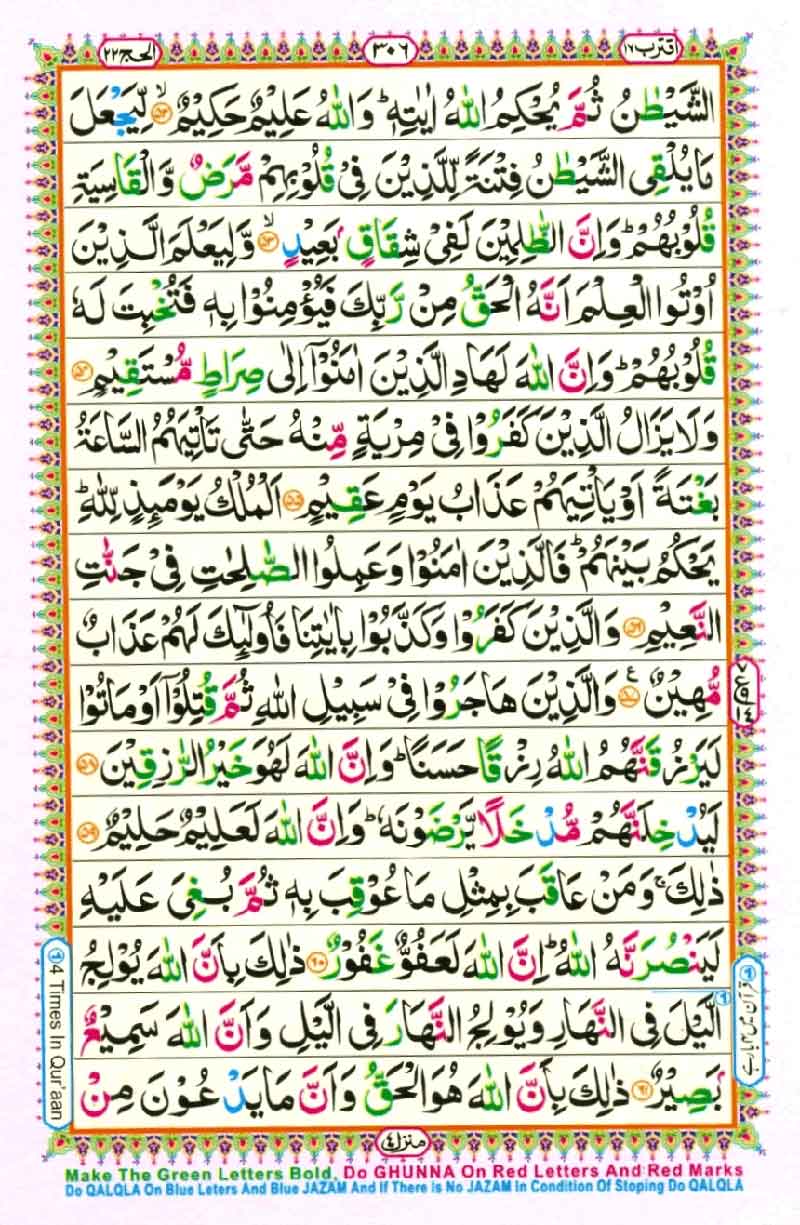 اقترب ١٦
٣٠٦
الحج ٢٢
الشَّيْطٰنُ ثُمَّ يُحْكِمُ اللّٰهُ اٰيٰتِهٖ ؕ وَاللّٰهُ عَلِيْمٌ حَكِيْمٌ ۙ﴿۵۲﴾ لِّيَجْعَلَ
مَا يُلْقِى الشَّيْطٰنُ فِتْنَةً لِّلَّذِيْنَ فِىْ قُلُوْبِهِمْ مَّرَضٌ وَّالْقَاسِيَةِ
قُلُوْبُهُمْ ؕ وَاِنَّ الظّٰلِمِيْنَ لَفِىْ شِقَاقٍۢ بَعِيْدٍ ۙ﴿۵۳﴾ وَّلِيَعْلَمَ الَّذِيْنَ
اُوْتُوا الْعِلْمَ اَنَّهُ الْحَقُّ مِنْ رَّبِّكَ فَيُؤْمِنُوْا بِهٖ فَتُخْبِتَ لَهٗ
قُلُوْبُهُمْ ؕ وَاِنَّ اللّٰهَ لَهَادِ الَّذِيْنَ اٰمَنُوْۤا اِلٰى صِرَاطٍ مُّسْتَقِيْمٍ ﴿۵۴﴾
وَلَا يَزَالُ الَّذِيْنَ كَفَرُوْا فِىْ مِرْيَةٍ مِّنْهُ حَتّٰى تَاْتِيَهُمُ السَّاعَةُ
بَغْتَةً اَوْ يَاْتِيَهُمْ عَذَابُ يَوْمٍ عَقِيْمٍ ﴿۵۵﴾ اَلْمُلْكُ يَوْمَئِذٍ لِّلّٰهِ ؕ
يَحْكُمُ بَيْنَهُمْ ؕ فَالَّذِيْنَ اٰمَنُوْا وَعَمِلُوا الصّٰلِحٰتِ فِىْ جَنّٰتِ
النَّعِيْمِ ﴿۵۶﴾ وَالَّذِيْنَ كَفَرُوْا وَكَذَّبُوْا بِاٰيٰتِنَا فَاُولٰٓئِكَ لَهُمْ عَذَابٌ
مُّهِيْنٌ ﴿۵۷﴾ ع وَالَّذِيْنَ هَاجَرُوْا فِىْ سَبِيْلِ اللّٰهِ ثُمَّ قُتِلُوْۤا اَوْ مَاتُوْا
لَيَرْزُقَنَّهُمُ اللّٰهُ رِزْقًا حَسَنًا ؕ وَاِنَّ اللّٰهَ لَهُوَ خَيْرُ الرّٰزِقِيْنَ ﴿۵۸﴾
لَيُدْخِلَنَّهُمْ مُّدْخَلًا يَّرْضَوْنَهٗ ؕ وَاِنَّ اللّٰهَ لَعَلِيْمٌ حَلِيْمٌ ﴿۵۹﴾
ذٰلِكَ ۚ وَمَنْ عَاقَبَ بِمِثْلِ مَا عُوْقِبَ بِهٖ ثُمَّ بُغِىَ عَلَيْهِ
لَيَنْصُرَنَّهُ اللّٰهُ ؕ اِنَّ اللّٰهَ لَعَفُوٌّ غَفُوْرٌ ﴿۶۰﴾ ذٰلِكَ بِاَنَّ اللّٰهَ يُوْلِجُ
الَّيْلَ فِى النَّهَارِ وَيُوْلِجُ النَّهَارَ فِى الَّيْلِ وَاَنَّ اللّٰهَ سَمِيْعٌۢ
بَصِيْرٌ ﴿۶۱﴾ ذٰلِكَ بِاَنَّ اللّٰهَ هُوَ الْحَقُّ وَاَنَّ مَا يَدْعُوْنَ مِنْ
4 Times In Qur'aan
منزل ٤
Make The Green Letters Bold, Do GHUNNA On Red Letters And Red Marks
Do QALQLA On Blue Leters And Blue JAZAM And If There Is No JAZAM In Condition Of Stoping Do QALQLA